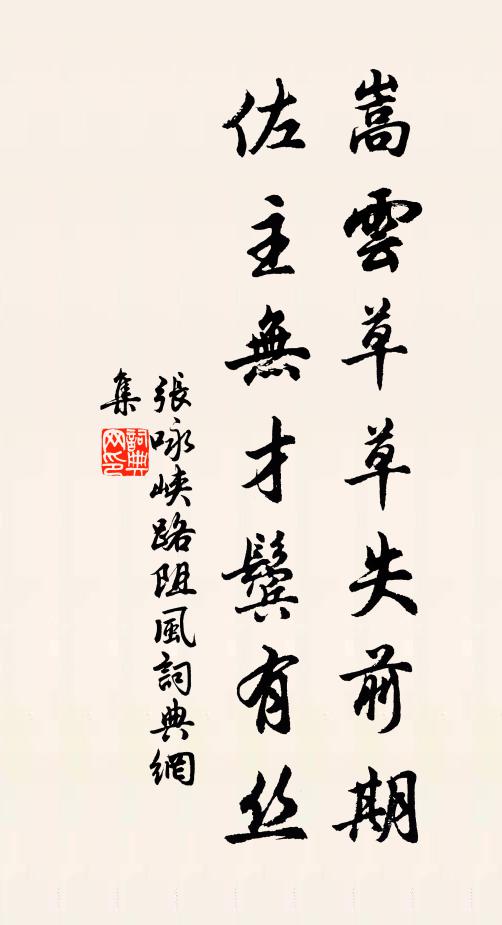 嵩雲草草失前期
佐主無才鬢有丝
張咏峽路阻風詞典網
集
詞典
网印